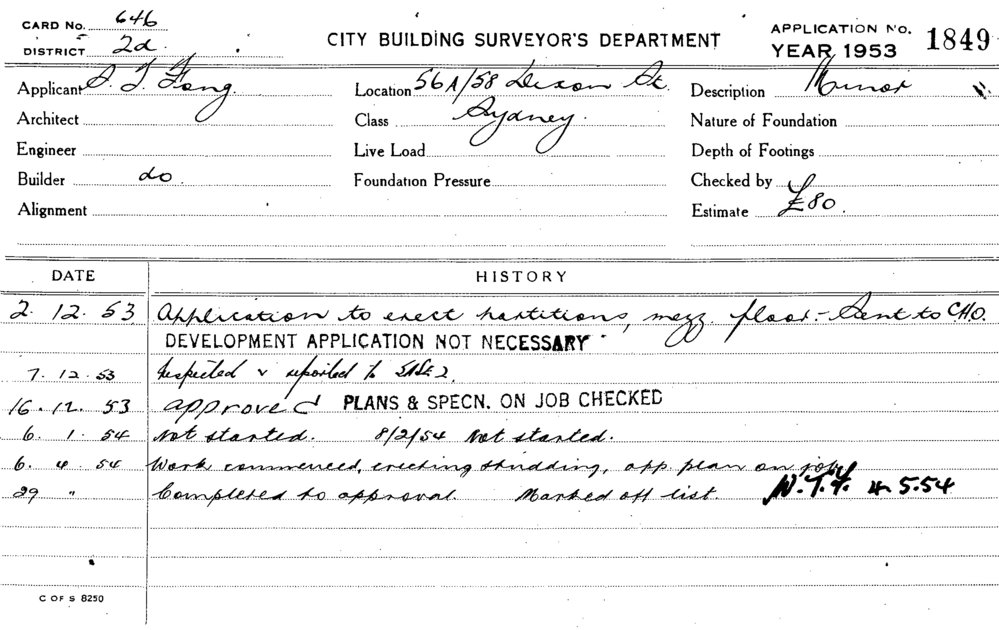 CARD No. 646
DISTRICT 2d.
CITY BUILDING SURVEYOR'S DEPARTMENT
APPLICATION No. 1849
YEAR 1953
Applicant Fong. Location 56A/58 Dixon St. Description Minor
Architect Class Sydney. Nature of Foundation
Engineer Live Load Depth of Footings
Builder do. Foundation Pressure Checked by
Alignment Estimate £80.
DATE HISTORY
2. 12. 53 Application to erect partitions, mezz. floor. - Sent to CHO.
DEVELOPMENT APPLICATION NOT NECESSARY
7. 12. 53 Inspected & reported to
16. 12. 53 approved PLANS & SPECN. ON JOB CHECKED
6. 1. 54 Not started. 8/2/54 Not started.
6. 4. 54 Work commenced, erecting studding, app. plan on job
29 " Completed to approval. Marked off list. 4.5.54
C OF S 8250